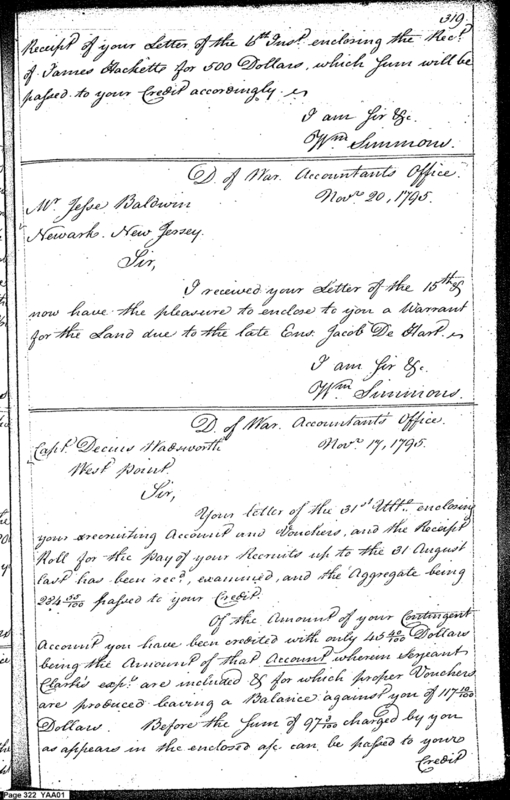 319.
Receipt of your Letter of the 6th Inst. enclosing the Rect.
of James Hacketts for 500 Dollars, which Sum will be
passed to your Credit accordingly
I am Sir &c.
Wm Simmons.
D. of War. Accountants Office.
Novr 20, 1795.
Mr Jesse Baldwin
Newark. New Jersey.
Sir,
I received your Letter of the 15th &
now have the pleasure to enclose to you a Warrant
for the Land due to the late Ens. Jacob De Hart.
I am Sir &c.
Wm Simmons.
D. of War. Accountant's Office.
Novr 17, 1795.
Capt. Decius Wadsworth
West Point
Sir,
Your letter of the 31st Ulto. enclosing
your recruiting Account and Vouchers, and the Receipt
Roll for the pay of your Recruits up to the 31 August
last has been recd, examined, and the Aggregate being
234 33/100 passed to your Credit.
Of the Amount of your Contingent
Account you have been credited with only 45 40/100 Dollars
being the Amount of that Account wherein Serjeant
Clarke's exps. are included & for which proper Vouchers
are produced leaving a Balance against you of 117 /100
Dollars. Before the Sum of 97 /100 charged by you
as appears in the enclosed a/c can be passed to your
Credit
Page 322 YAA01